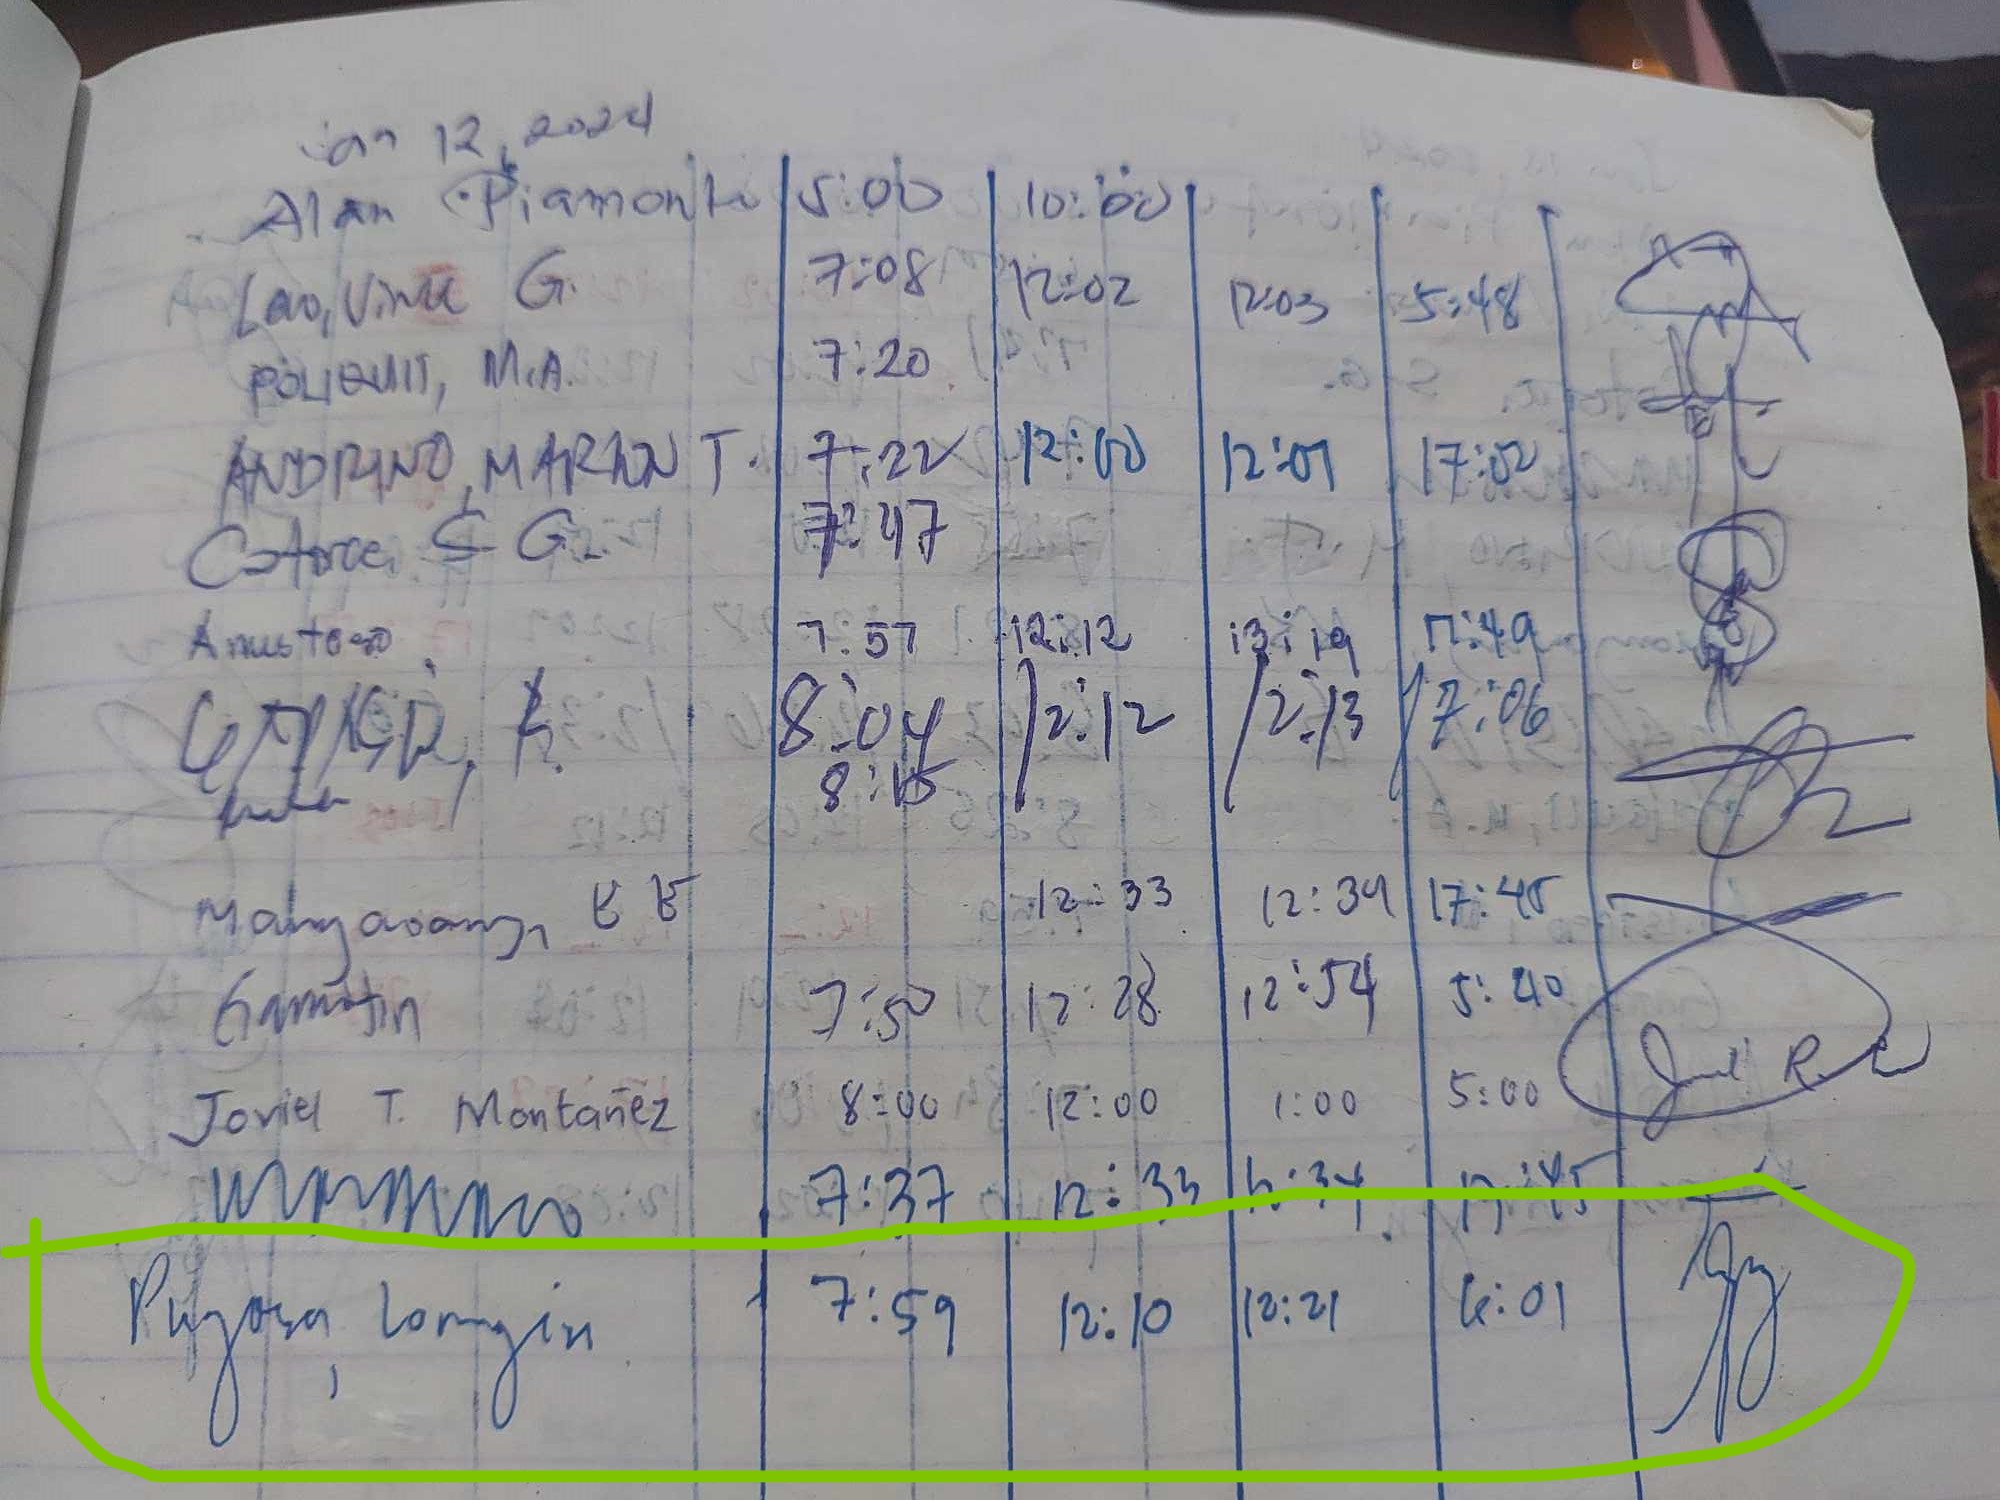 Jan 12, 2024
Alan Piamonte 5:00 10:00
Lao, Vince G. 7:08 12:02 12:03 5:48
POLIQUIT, M.A. 7:20
ANDRINO, MARION T. 7:22 12:00 12:01 17:02
Catorce, S G. 7:47
7:57 12:12 13:19 17:49
8:04 12:12 12:13 17:06
8:15
12:33 12:34 17:45
Gamotin 7:50 12:28 12:54 5:40
Joviel T. Montañez 8:00 12:00 1:00 5:00
7:37 12:33 12:34 17:45
Puyosa, Longin 7:59 12:10 12:21 6:01